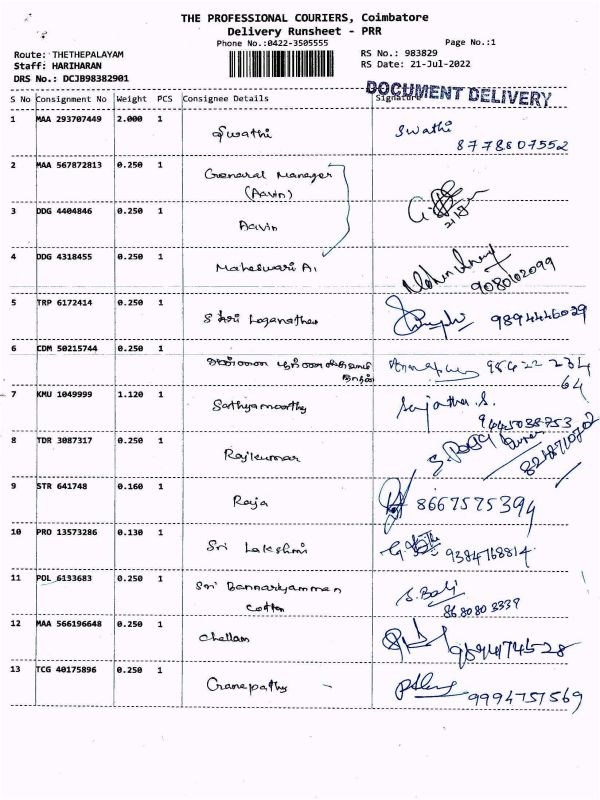 THE PROFESSIONAL COURIERS, Coimbatore
Delivery Runsheet - PRR
Phone No.:0422-3505555
Page No.:1
Route: THETHEPALAYAM
RS No.: 983829
Staff: HARIHARAN
RS Date: 21-Jul-2022
DRS No.: DCJB98382901
DOCUMENT DELIVERY
S No Consignment No Weight PCS Consignee Details Signature
1 MAA 293707449 2.000 1 Swathi Swathi
8778607552
2 MAA 567872813 0.250 1 General Manager
(Aavin)
3 DDG 4404846 0.250 1 Aavin
4 DDG 4318455 0.250 1 Maheswari A
9080602099
5 TRP 6172414 0.250 1 Loganathan 9894446029
6 CDM 50215744 0.250 1 98422 234
64
7 KMU 1049999 1.120 1 Sathyamoorthy Sujatha. S.
9445038753
8 TDR 3087317 0.250 1 Rajkumar
9 STR 641748 0.160 1 Raja 8667575394
10 PRO 13573286 0.130 1 Sri Lakshmi 9384768814
11 POL 6133683 0.250 1 Sri Bannariyamman
Cotton
S. Balj
8680803339
12 MAA 566196648 0.250 1 Chellam 9894474528
13 TCG 40175896 0.250 1 Ganapathy 9994757569